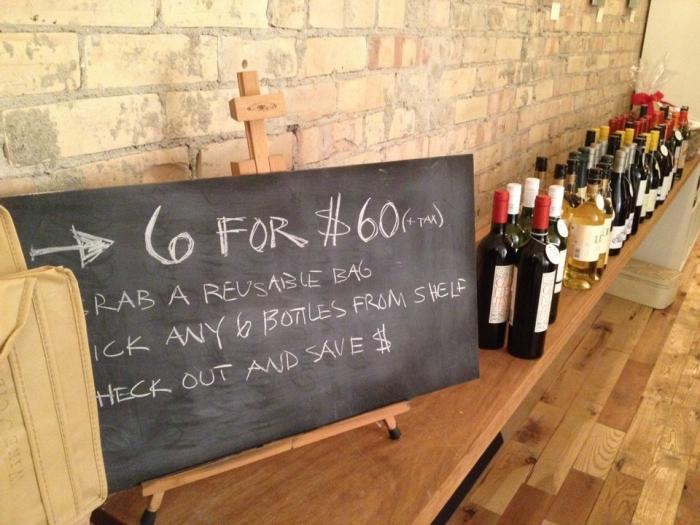 6 FOR $60 (+ TAX)
RAB A REUSABLE BAG
ICK ANY 6 BOTTLES FROM SHELF
HECK OUT AND SAVE $